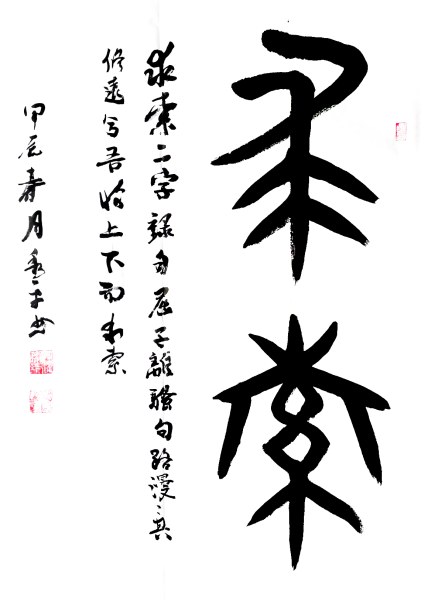 求索
求索二字録自屈子離騷句路漫〻其
修遠兮吾將上下而求索
甲辰春月